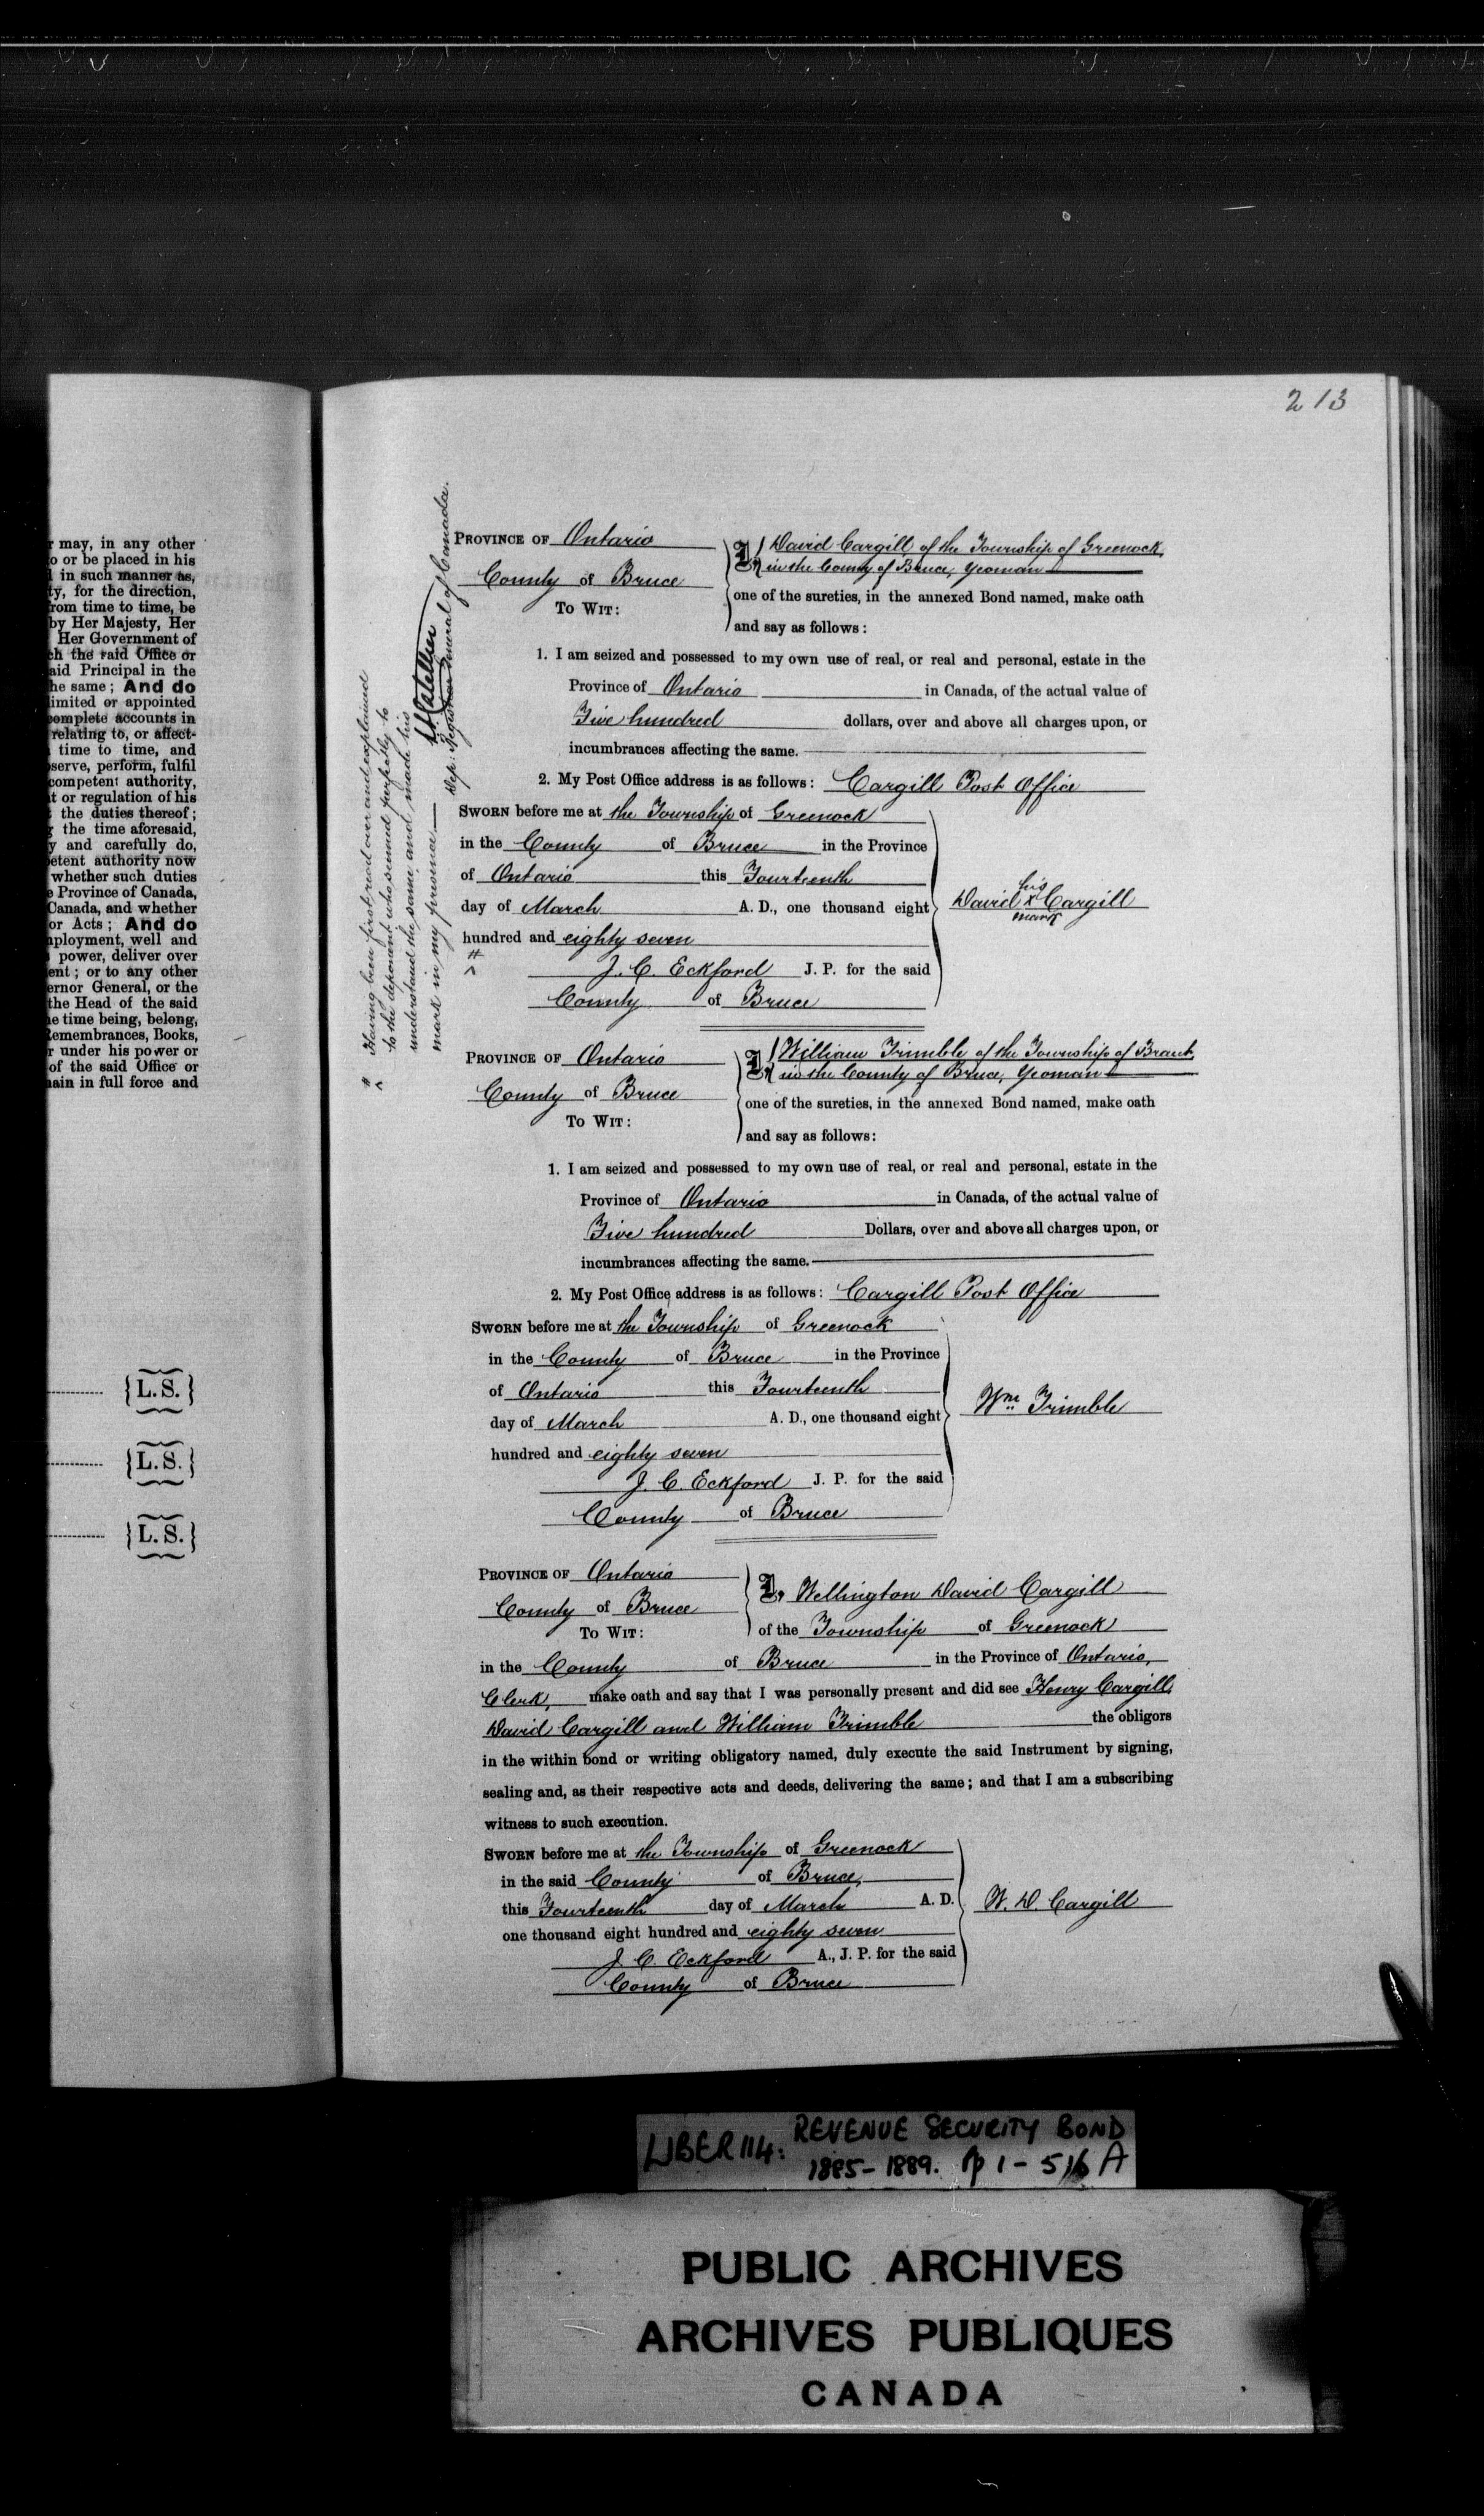 213
r may, in any other
o or be placed in his
l in such manner as,
ty, for the direction,
rom time to time, be
by Her Majesty, Her
Her Government of
ch the said Office or
aid Principal in the
he same; And do
limited or appointed
complete accounts in
relating to, or affect-
time to time, and
serve, perform, fulfil
competent authority,
t or regulation of his
the duties thereof;
the time aforesaid,
y and carefully do,
etent authority now
whether such duties
e Province of Canada,
Canada, and whether
or Acts; And do
mployment, well and
power, deliver over
ent; or to any other
ernor General, or the
the Head of the said
e time being, belong,
Remembrances, Books,
r under his power or
of the said Office or
ain in full force and
{L. S.}
{L. S.}
{L. S.}
# Having been first read over and explained
to the deponent who seemed perfectly to
understand the same and made his
mark in my presence.
Dep: Registrar General of Canada.
PROVINCE OF Ontario
County of Bruce
TO WIT:
I, David Cargill of the Township of Greenock,
in the County of Bruce, Yeoman
one of the sureties, in the annexed Bond named, make oath
and say as follows:
1. I am seized and possessed to my own use of real, or real and personal, estate in the
Province of Ontario in Canada, of the actual value of
Five hundred dollars, over and above all charges upon, or
incumbrances affecting the same.
2. My Post Office address is as follows: Cargill Post Office
SWORN before me at the Township of Greenock
in the County of Bruce in the Province
of Ontario this Fourteenth
day of March A. D., one thousand eight
hundred and eighty seven
#
J. C. Eckford J. P. for the said
County of Bruce
his
David X Cargill
mark
PROVINCE OF Ontario
County of Bruce
TO WIT:
I, William Trimble of the Township of Brant
in the County of Bruce, Yeoman
one of the sureties, in the annexed Bond named, make oath
and say as follows:
1. I am seized and possessed to my own use of real, or real and personal, estate in the
Province of Ontario in Canada, of the actual value of
Five hundred Dollars, over and above all charges upon, or
incumbrances affecting the same.
2. My Post Office address is as follows: Cargill Post Office
SWORN before me at the Township of Greenock
in the County of Bruce in the Province
of Ontario this Fourteenth
day of March A. D., one thousand eight
hundred and eighty seven
J. C. Eckford J. P. for the said
County of Bruce
Wm Trimble
PROVINCE OF Ontario
County of Bruce
TO WIT:
I, Wellington David Cargill
of the Township of Greenock
in the County of Bruce in the Province of Ontario,
Clerk, make oath and say that I was personally present and did see Henry Cargill,
David Cargill and William Trimble the obligors
in the within bond or writing obligatory named, duly execute the said Instrument by signing,
sealing and, as their respective acts and deeds, delivering the same; and that I am a subscribing
witness to such execution.
SWORN before me at the Township of Greenock
in the said County of Bruce,
this Fourteenth day of March A. D.
one thousand eight hundred and eighty seven
J. C. Eckford A., J. P. for the said
County of Bruce
W. D. Cargill
LIBER 114: REVENUE SECURITY BOND
1885-1889. pp 1-516A
PUBLIC ARCHIVES
ARCHIVES PUBLIQUES
CANADA